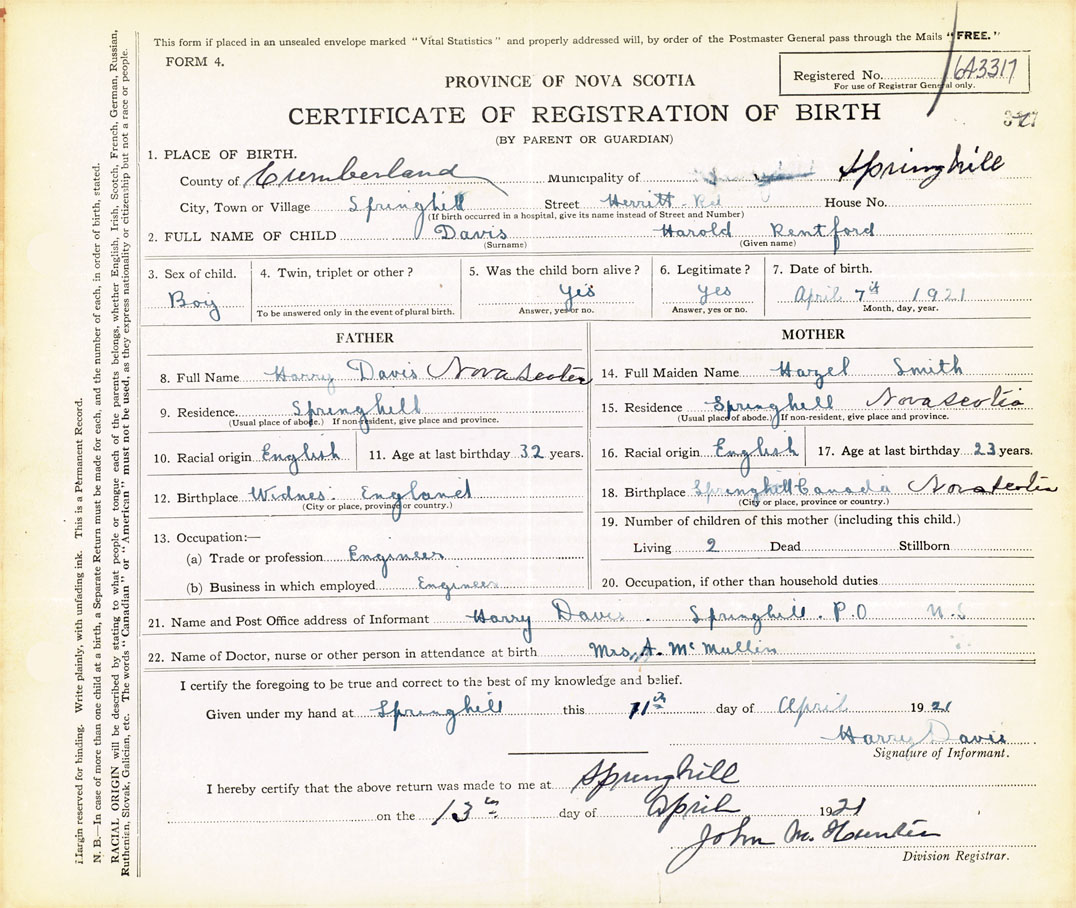 This form if placed in an unsealed envelope marked "Vital Statistics" and properly addressed will, by order of the Postmaster General pass through the Mails "FREE."
FORM 4.
Registered No. 6A3317
For use of Registrar General only.
PROVINCE OF NOVA SCOTIA
CERTIFICATE OF REGISTRATION OF BIRTH
(BY PARENT OR GUARDIAN)
1. PLACE OF BIRTH.
County of Cumberland Municipality of Springhill
City, Town or Village Springhill Street Herritt Rd House No.
(If birth occurred in a hospital, give its name instead of Street and Number)
2. FULL NAME OF CHILD Davis Harold Rentford
(Surname) (Given name)
3. Sex of child. 4. Twin, triplet or other? 5. Was the child born alive? 6. Legitimate? 7. Date of birth.
Boy Yes Yes April 7th 1921
To be answered only in the event of plural birth. Answer, yes or no. Answer, yes or no. Month, day, year.
FATHER
8. Full Name Harry Davis Nova Scotia
9. Residence. Springhill
(Usual place of abode.) If non-resident, give place and province.
10. Racial origin English 11. Age at last birthday 32 years.
12. Birthplace Widnes. England
(City or place, province or country.)
13. Occupation:—
(a) Trade or profession Engineer
(b) Business in which employed Engineer
MOTHER
14. Full Maiden Name Hazel Smith
15. Residence Springhill Nova Scotia
(Usual place of abode.) If non-resident, give place and province.
16. Racial origin English 17. Age at last birthday 23 years.
18. Birthplace Springhill Canada Nova Scotia
(City or place, province or country.)
19. Number of children of this mother (including this child.)
Living 2 Dead Stillborn
20. Occupation, if other than household duties
21. Name and Post Office address of Informant Harry Davis. Springhill. P.O N.S
22. Name of Doctor, nurse or other person in attendance at birth Mrs A. McMullin
I certify the foregoing to be true and correct to the best of my knowledge and belief.
Given under my hand at Springhill this 11th day of April 1921
Harry Davis
Signature of Informant.
I hereby certify that the above return was made to me at Springhill
on the 13th day of April 1921
John M. Hunter
Division Registrar.
Margin reserved for binding. Write plainly, with unfading ink. This is a Permanent Record.
N. B.—In case of more than one child at a birth, a Separate Return must be made for each, and the number of each, in order of birth, stated.
RACIAL ORIGIN will be described by stating to what people or tongue each of the parents belongs, whether English, Irish, Scotch, French, German, Russian,
Ruthenien, Slovak, Galician, etc. The words "Canadian" or "American" must not be used, as they express nationality or citizenship but not a race or people.